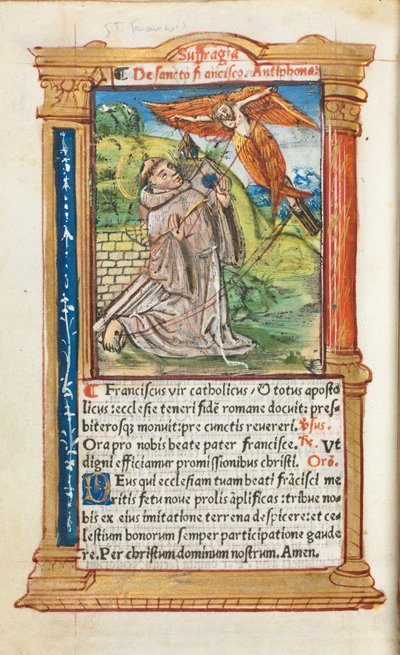 St. Francis
Suffragia
¶ De sancto frãncisco. Antiphona:
¶ Franciscus vir catholicus / & totus aposto
licus: ecclesie teneri fidẽ romane docuit: pres-
biterosq; monuit: pre cunctis revereri. Vsus.
Ora pro nobis beate pater francisce. R. Vt
digni efficiamur promissionibus christi. Orõ.
DEus qui ecclesiam tuam beati frãcisci me
ritis fetu noue prolis ãplificas: tribue no-
bis ex eius imitatione terrena despicere: et ce-
lestium bonorum semper participatione gaude
re. Per christum dominum nostrum. Amen.